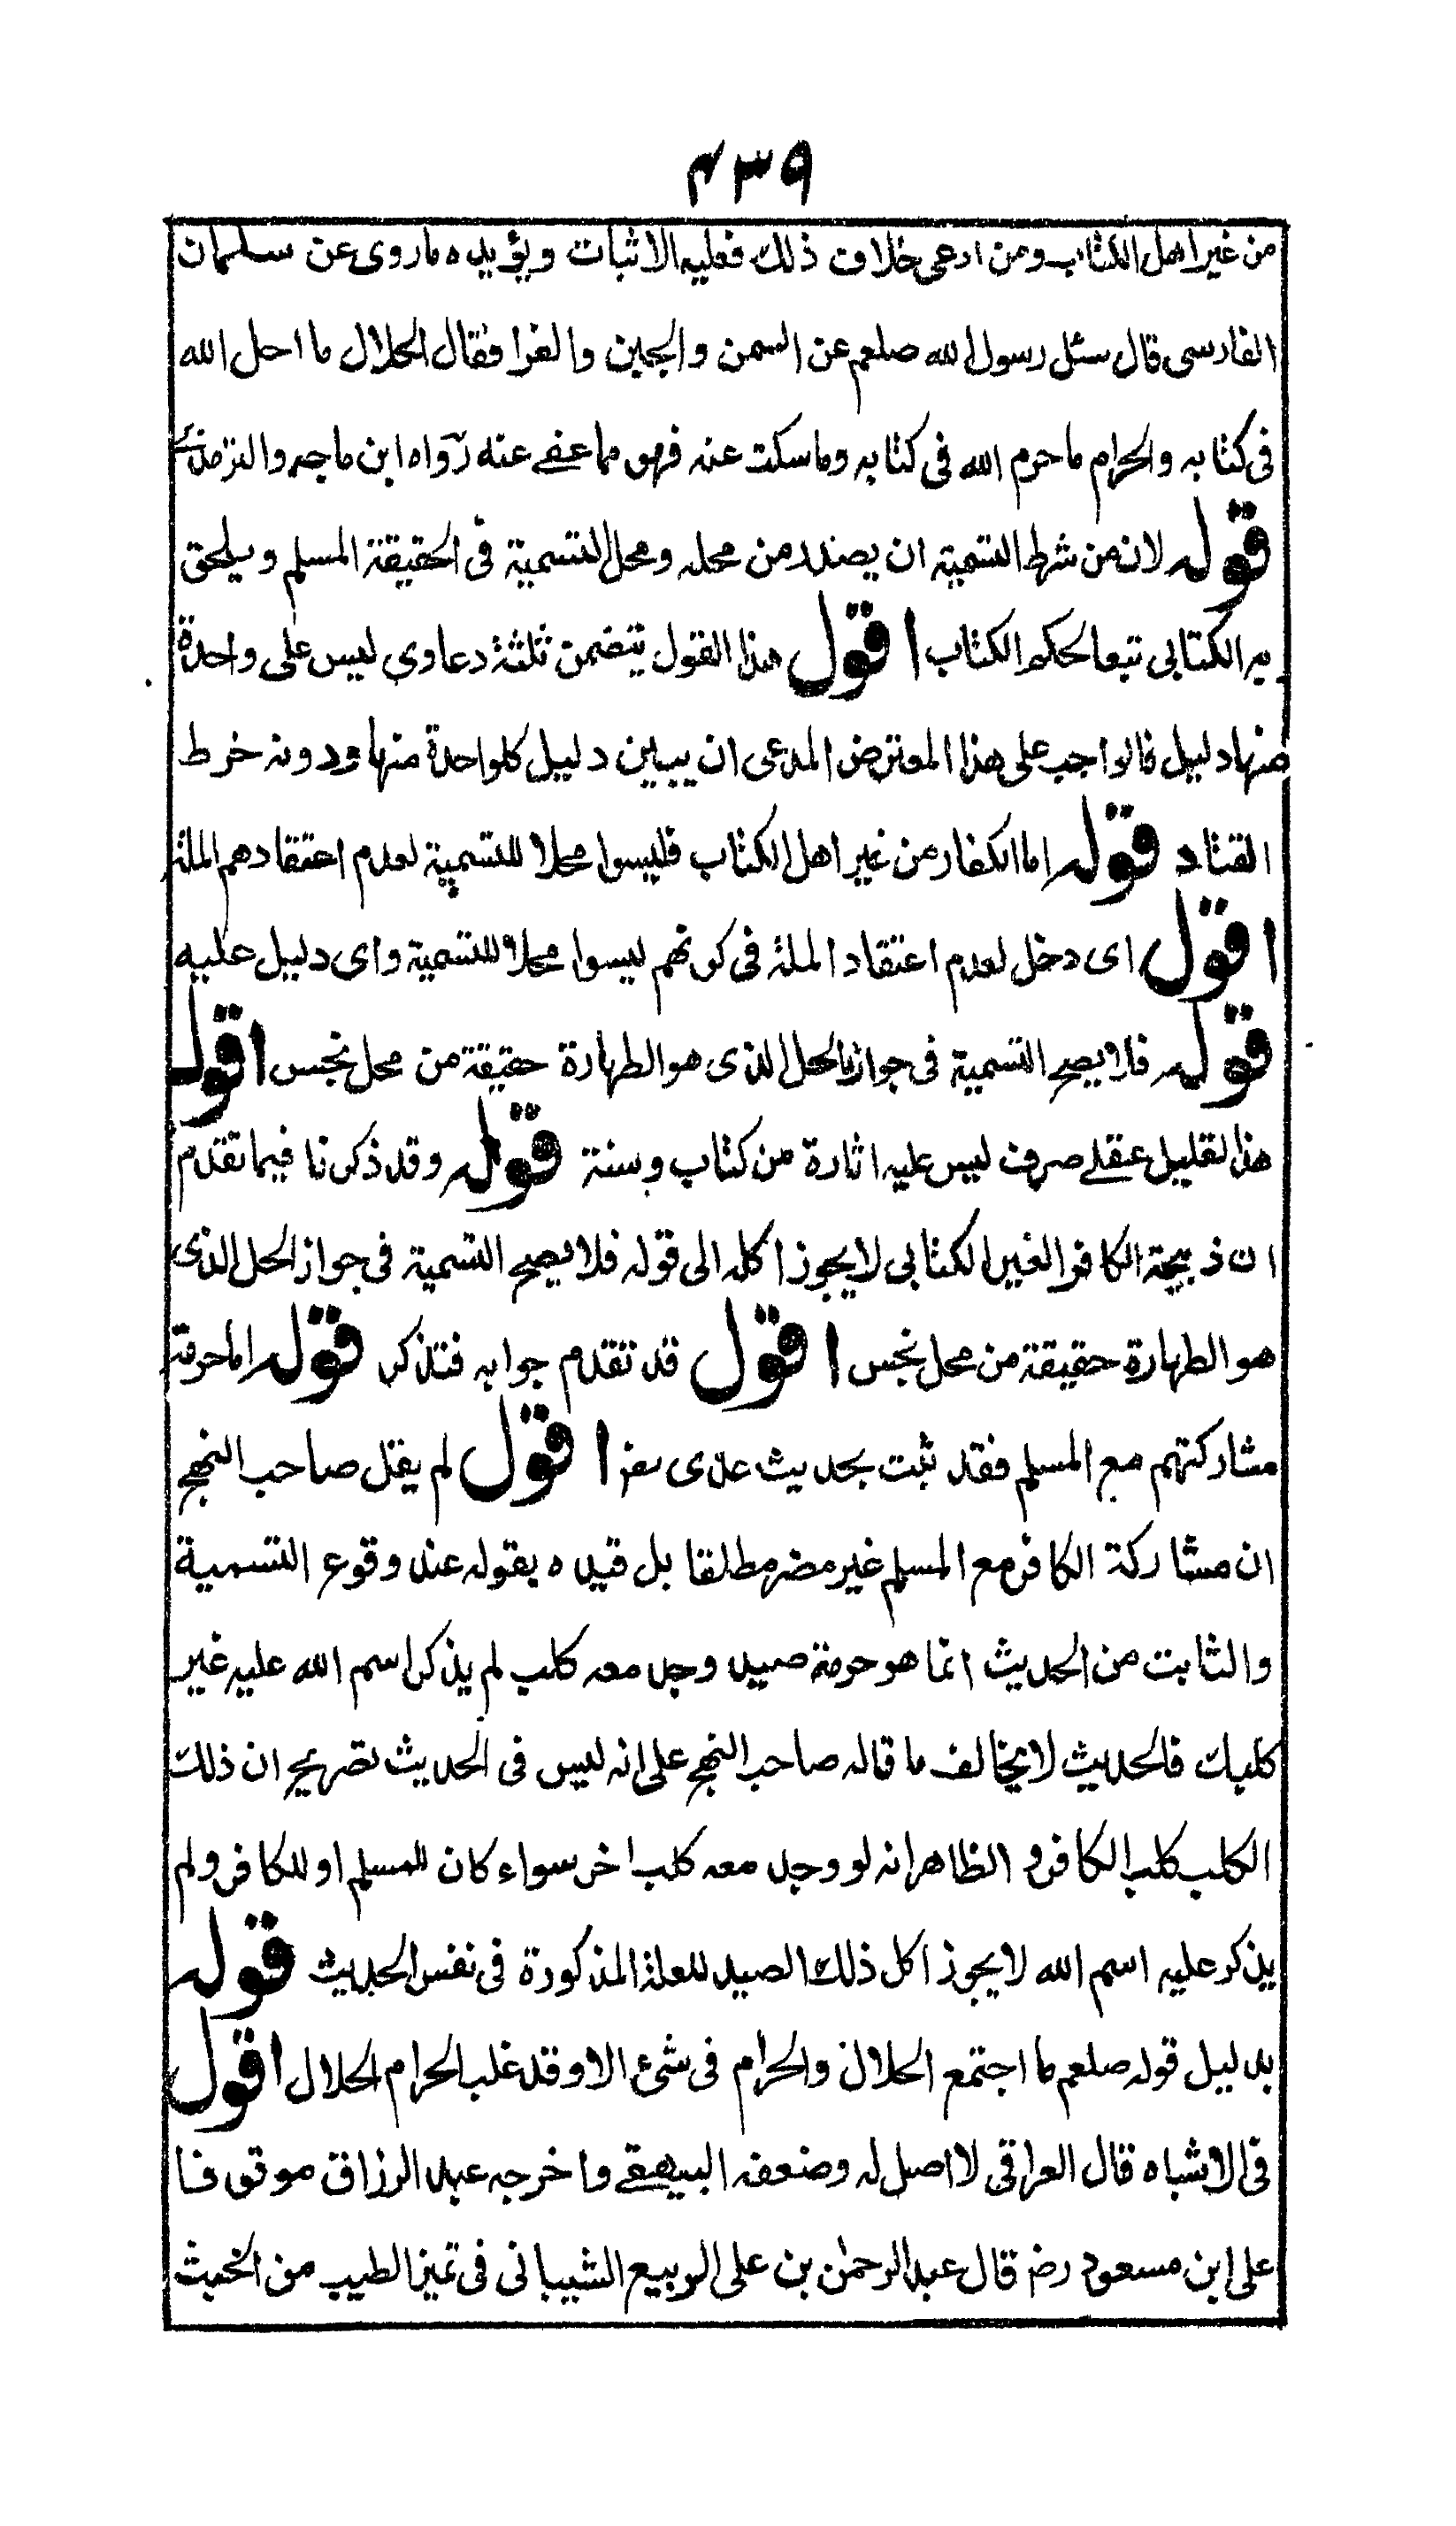 ۴۳۹
من غير اهل الكتاب ومن ادعى خلاف ذلك فعليه الاثبات ويؤيده ماروى عن سلمان
الفارسى قال سئل رسول الله صلعم عن السمن والجبن والفرا فقال الحلال ما احل الله
فى كتابه والحرام ما حرم الله فى كتابه وما سكت عنه فهو مما عفے عنه رواه ابن ماجه والترمذے
قوله لان من شرط التسمية ان يصدر من محله ومحل التسمية فى الحقيقة المسلم ويلحق
به الكتابى تبعا لحكم الكتاب اقول هذا القول يتضمن ثلثة دعاوى ليس على واحدة
منها دليل فالواجب على هذا المعترض المدعى ان يبين دليل كلواحدة منها ودونه خرط
القتاد قوله اما الكفار من غير اهل الكتاب فليسوا محلا للتسمية لعدم اعتقادهم الملة
اقول اى دخل لعدم اعتقاد الملة فى كونهم ليسوا محلا للتسمية واى دليل عليه
قوله فلا يصح التسمية فى جواز الحل الذى هو الطهارة حقيقة من محل نجس اقول
هذا تعليل عقلے صرف ليس عليه اثارة من كتاب وسنة قوله وقد ذكرنا فيما تقدم
ان ذبيحة الكافر الغير الكتابى لا يجوز اكله الى قوله فلا يصح التسمية فى جواز الحل الذى
هو الطهارة حقيقة من محل نجس اقول قد تقدم جوابه فتذكر قوله اما حرمة
مشاركتهم مع المسلم فقد ثبت بحديث عدى اقول لم يقل صاحب النهج
ان مشاركة الكافر مع المسلم غير مضر مطلقا بل قيده بقوله عند وقوع التسمية
والثابت من الحديث انما هو حرمة صيد وجد معه كلب لم يذكر اسم الله عليه غير
كلبك فالحديث لا يخالف ما قاله صاحب النهج على انه ليس فى الحديث تصريح ان ذلك
الكلب كلب الكافر و الظاهر انه لو وجد معه كلب اخر سواء كان للمسلم او للكافر ولم
يذكر عليه اسم الله لا يجوز اكل ذلك الصيد للعلة المذكورة فى نفس الحديث قوله
بدليل قوله صلعم ما اجتمع الحلال والحرام فى شئ الا وقد غلب الحرام الحلال اقول
فى الاشباه قال العراقى لا اصل له وضعفه البيهقے واخرجه عبد الرزاق موقوفا
على ابن مسعود رض قال عبد الرحمن بن على الربيع الشيبانى فى تميز الطيب من الخبيث